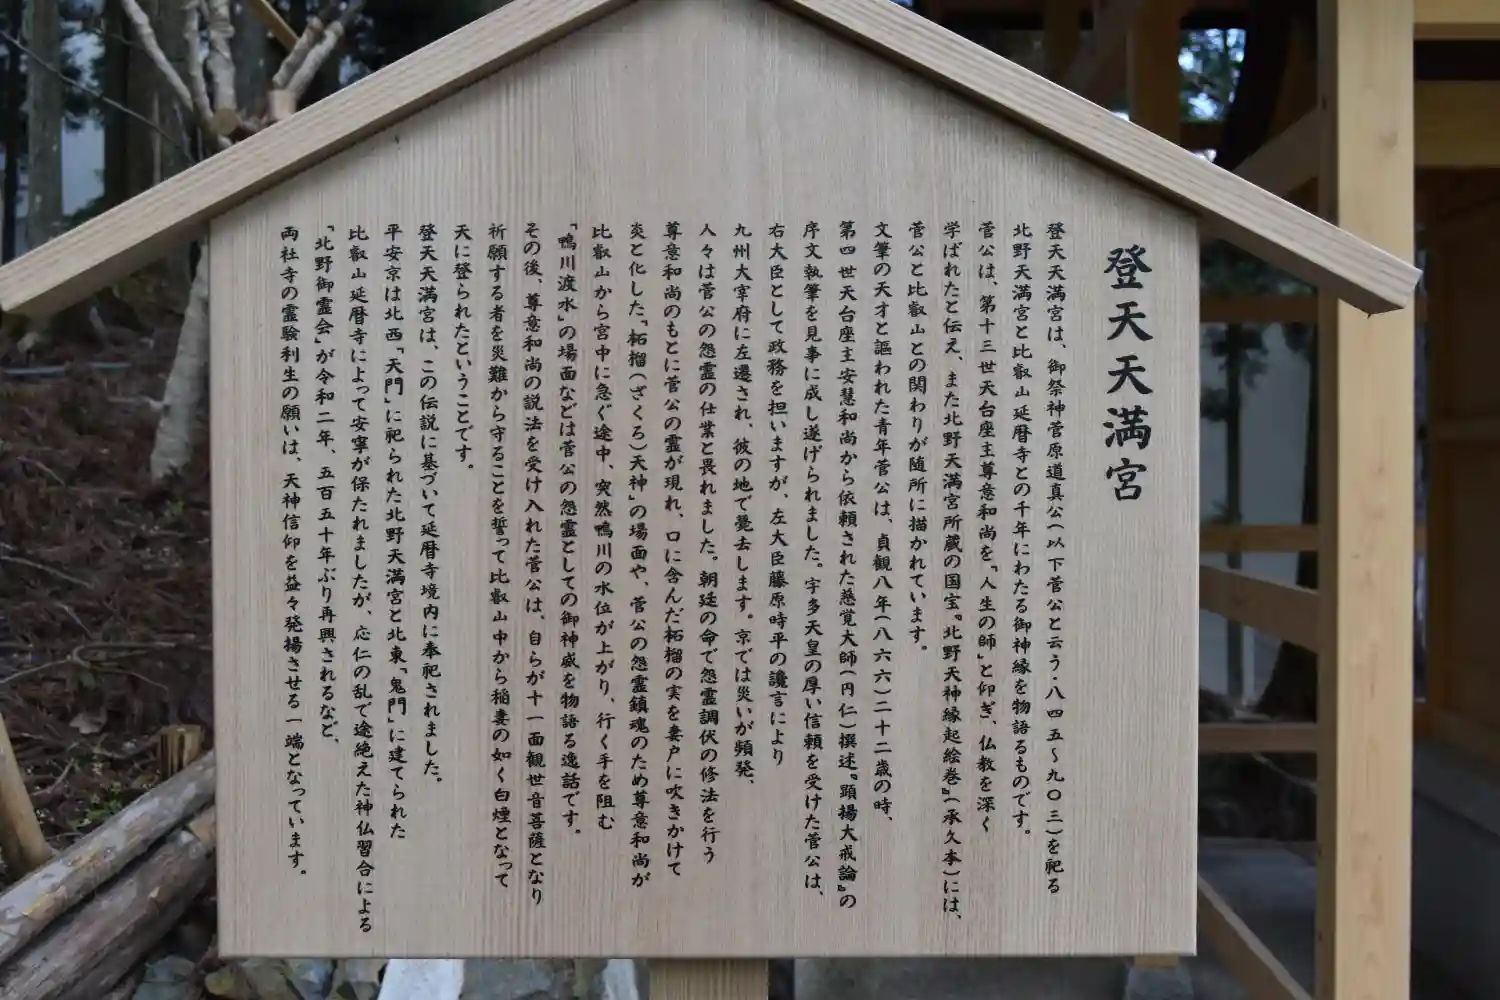 登天天満宮
登天天満宮は、御祭神菅原道真公(以下菅公と云う・八四五～九〇三)を祀る
北野天満宮と比叡山延暦寺との千年にわたる御神縁を物語るものです。
菅公は、第十三世天台座主尊意和尚を「人生の師」と仰ぎ、仏教を深く
学ばれたと伝え、また北野天満宮所蔵の国宝『北野天神縁起絵巻』(承久本)には、
菅公と比叡山との関わりが随所に描かれています。
文筆の天才と謳われた青年菅公は、貞観八年(八六六)二十二歳の時、
第四世天台座主安慧和尚から依頼された慈覚大師(円仁)撰述『顕揚大戒論』の
序文執筆を見事に成し遂げられました。宇多天皇の厚い信頼を受けた菅公は、
右大臣として政務を担いますが、左大臣藤原時平の讒言により
九州大宰府に左遷され、彼の地で薨去します。京では災いが頻発、
人々は菅公の怨霊の仕業と畏れました。朝廷の命で怨霊調伏の修法を行う
尊意和尚のもとに菅公の霊が現れ、口に含んだ柘榴の実を妻戸に吹きかけて
炎と化した「柘榴(ざくろ)天神」の場面や、菅公の怨霊鎮魂のため尊意和尚が
比叡山から宮中に急ぐ途中、突然鴨川の水位が上がり、行く手を阻む
「鴨川渡水」の場面などは菅公の怨霊としての御神威を物語る逸話です。
その後、尊意和尚の説法を受け入れた菅公は、自らが十一面観世音菩薩となり
祈願する者を災難から守ることを誓って比叡山中から稲妻の如く白煙となって
天に登られたということです。
登天天満宮は、この伝説に基づいて延暦寺境内に奉祀されました。
平安京は北西「天門」に祀られた北野天満宮と北東「鬼門」に建てられた
比叡山延暦寺によって安寧が保たれましたが、応仁の乱で途絶えた神仏習合による
「北野御霊会」が令和二年、五百五十年ぶり再興されるなど、
両社寺の霊験利生の願いは、天神信仰を益々発揚させる一端となっています。